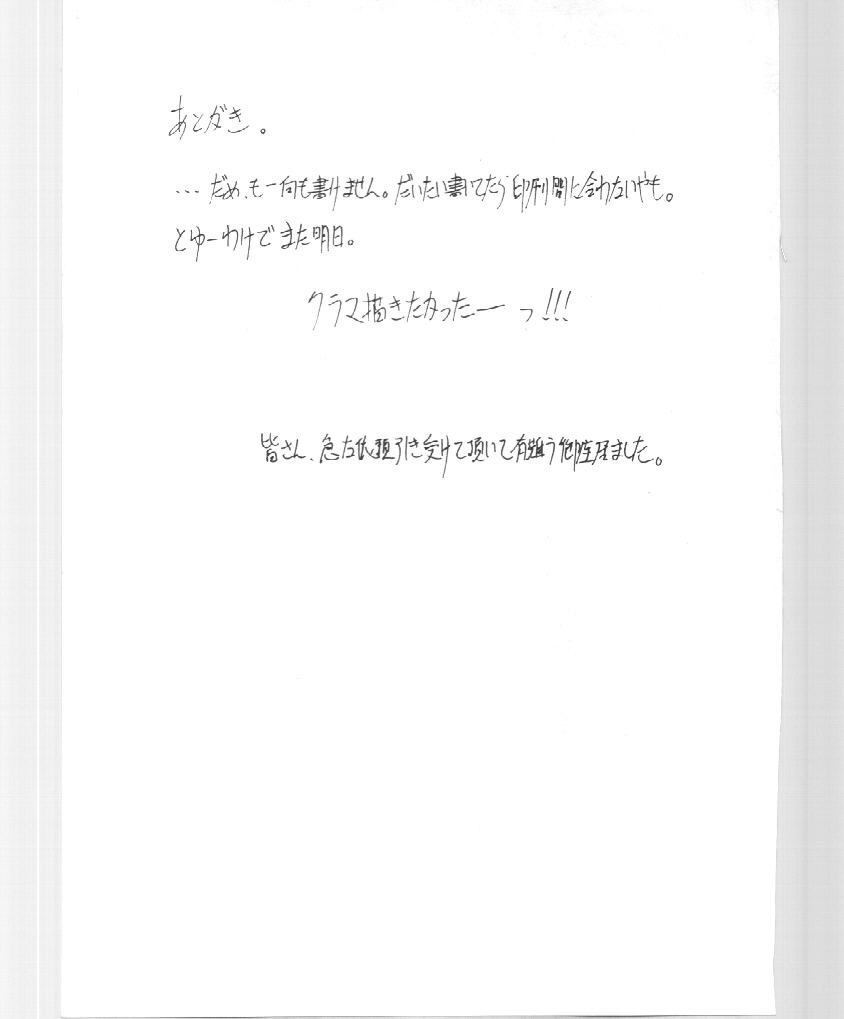 あとがき。
…だめ、も一向も書けません。だいたい書いてたら印刷間に合わないやも。
とゆーわけでまた明日。
クラマ描きたかったーっ!!!
皆さん、急な依頼引き受けて頂いて有難う御座居ました。